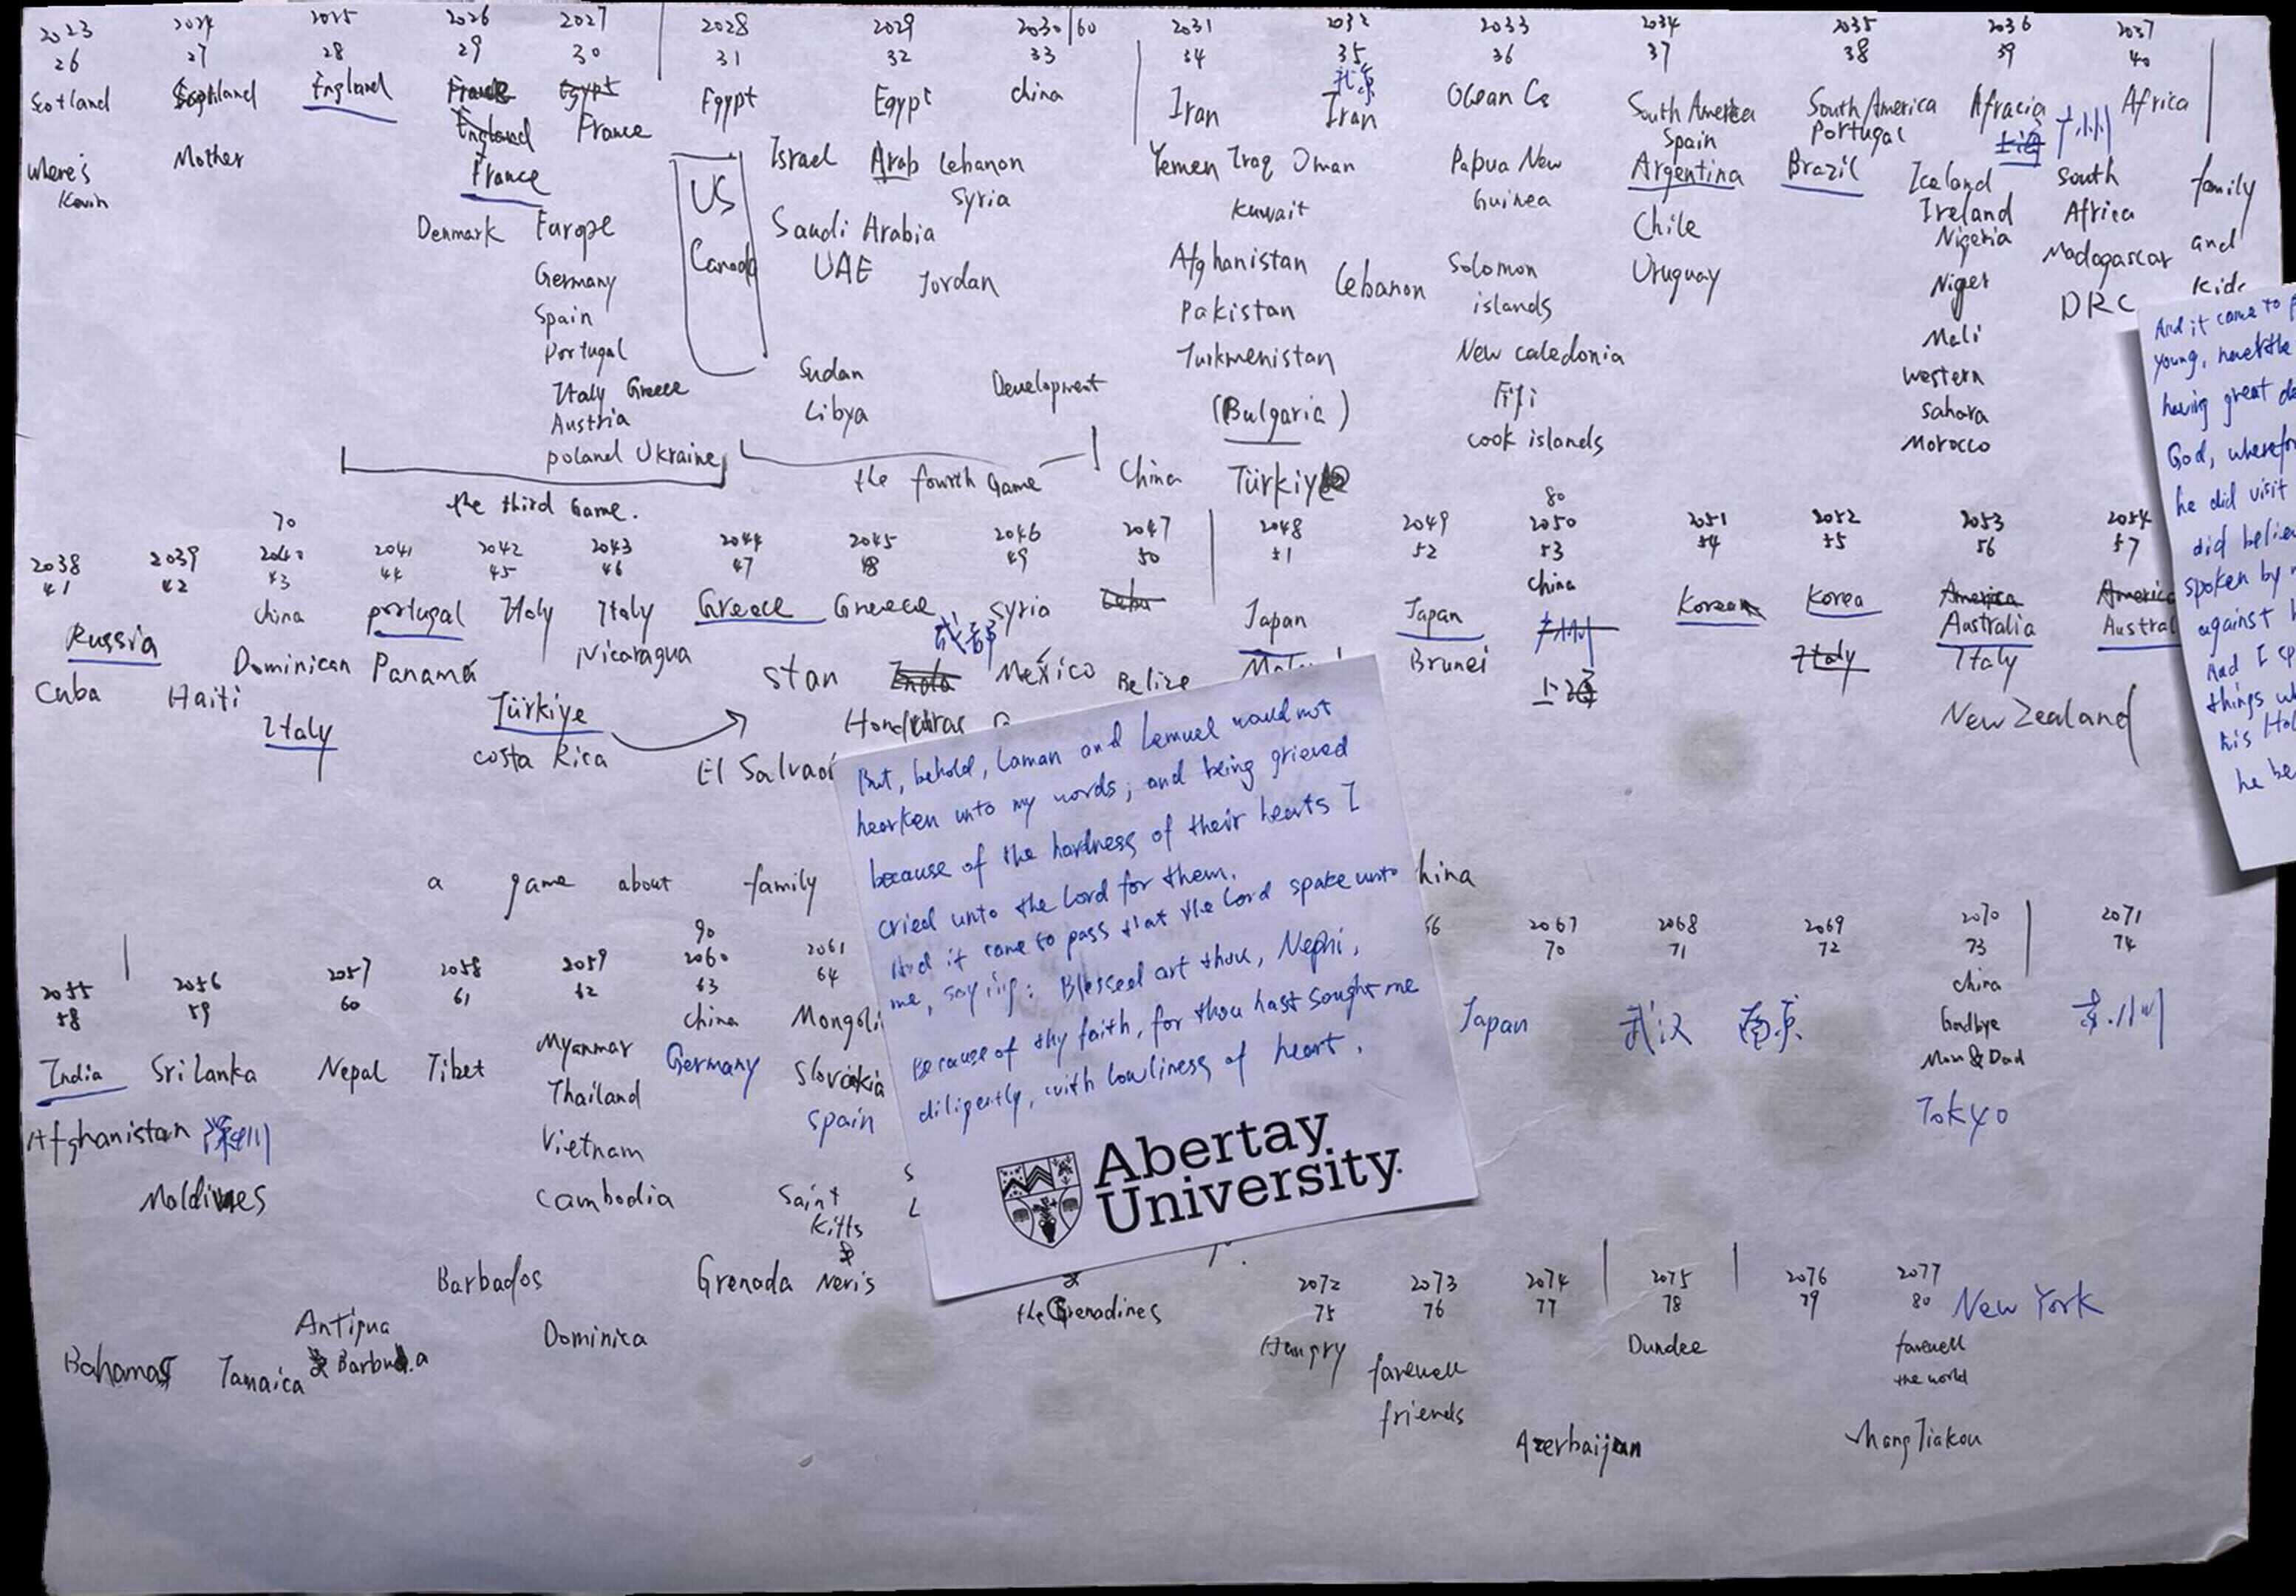 2023 2024 2025 2026 2027 2028 2029 2030/60 2031 2032 2033 2034 2035 2036 2037
26 27 28 29 30 31 32 33 34 35 36 37 38 39 40
Scotland Scotland England France Egypt Egypt Egypt China Iran 北京 Iran Ocean South America South America Africa
England France Spain Portugal 上海 广州
Where's Kevin Mother France US Israel Arab Lebanon Yemen Iraq Oman Papua New Argentina Brazil Iceland South family
Syria Kuwait Guinea Ireland Africa
Denmark Europe Canada Saudi Arabia Chile Nigeria Madagascar and
Germany UAE Jordan Afghanistan Lebanon Solomon Uruguay Niger DRC kids
Spain Pakistan islands
Portugal Sudan Development Turkmenistan New Caledonia Mali
Italy Greece Libya (Bulgaria) Fiji Western
Austria cook islands Sahara
Poland Ukraine Morocco
the third Game. the fourth Game China Türkiye
70 80
2038 2039 2040 2041 2042 2043 2044 2045 2046 2047 2048 2049 2050 2051 2052 2053 2054
41 42 43 44 45 46 47 48 49 50 51 52 53 54 55 56 57
Russia China Portugal Italy Italy Greece Greece Syria Cuba Japan Japan China Korea Korea America America
成都 Brunei 广州 Italy Australia Austral
Cuba Haiti Dominican Panamá Nicaragua stan India México Belize 上海 Italy
Italy Türkiye Honduras New Zealand
Costa Rica El Salvador
a game about family hina
90
2055 2056 2057 2058 2059 2060 2061 66 2067 2068 2069 2070 2071
58 59 60 61 62 63 64 70 71 72 73 74
India Sri Lanka Nepal Tibet Myanmar China Mongoli Japan 武汉 南京 China
Thailand Germany Slovakia Goodbye
Afghanistan 深圳 Vietnam Spain Mom & Dad
Maldives Cambodia Saint Tokyo
Kitts
&
Barbados Grenada Nevis
Antigua Dominica the Grenadines
Bahamas Jamaica & Barbuda
2072 2073 2074 2075 2076 2077 New York
75 76 77 78 79 80
Hungry farewell Dundee farewell
friends the world
Azerbaijan Zhang Jiakou
But, behold, Laman and Lemuel would not
hearken unto my words; and being grieved
because of the hardness of their hearts I
cried unto the Lord for them.
And it came to pass that the Lord spake unto
me, saying: Blessed art thou, Nephi,
because of thy faith, for thou hast sought me
diligently, with lowliness of heart.
Abertay
University
And it came to p
young, neverthe
having great de
God, wherefor
he did visit
did believ
spoken by m
against
And I sp
things wh
his Hol
he be